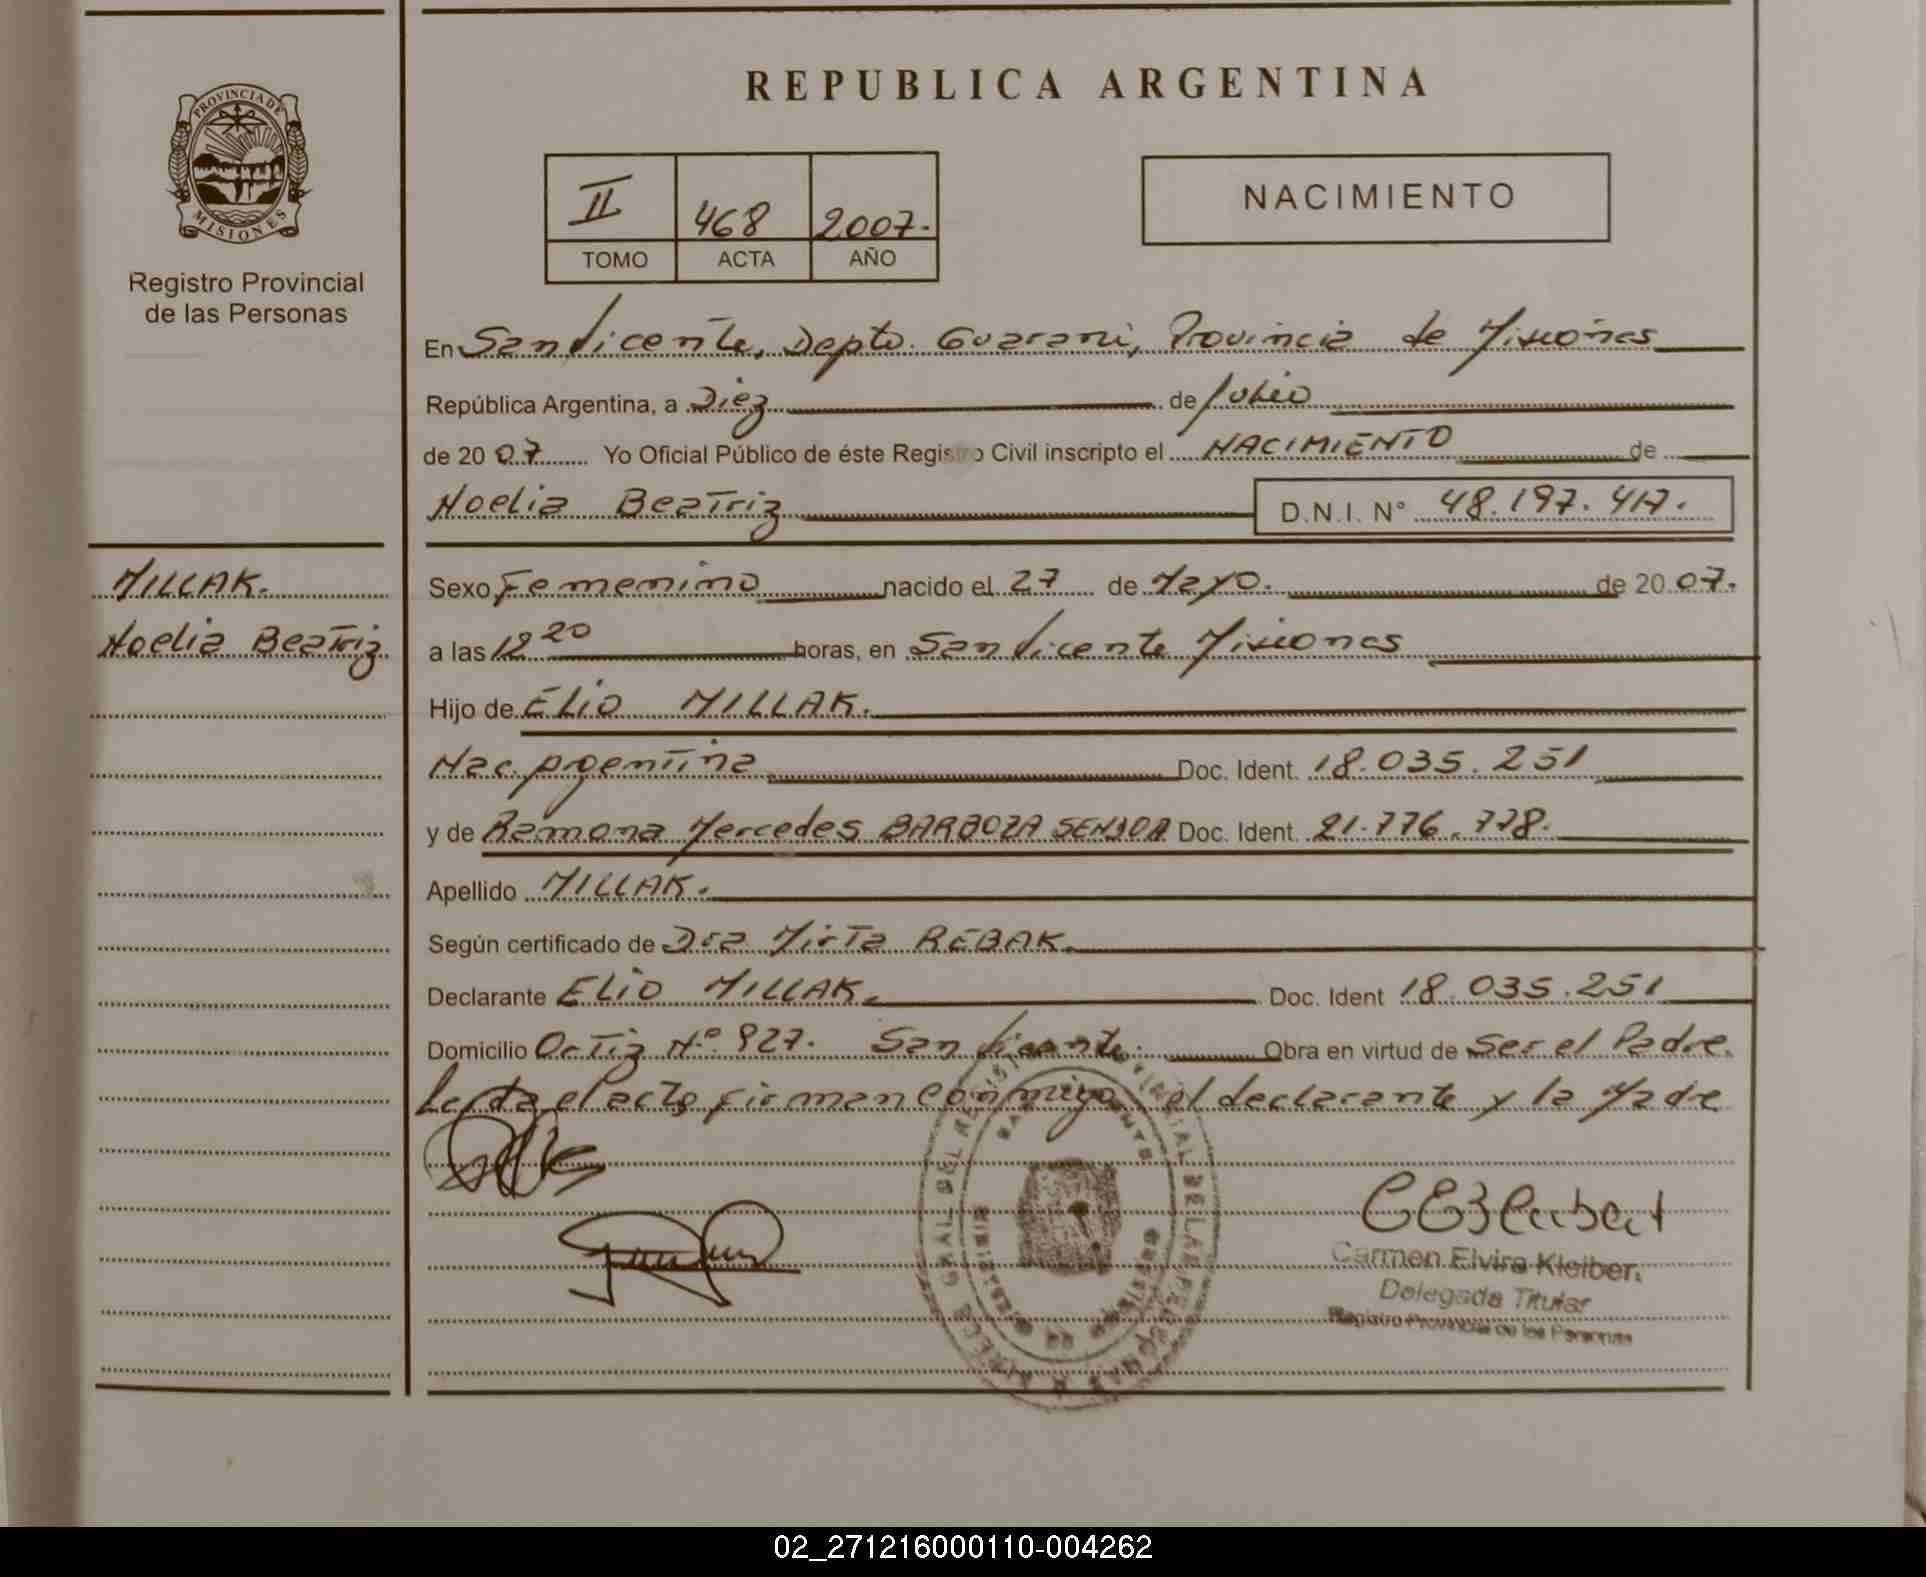 REPUBLICA ARGENTINA
PROVINCIA DE
MISIONES
Registro Provincial
de las Personas
II 468 2007.
TOMO ACTA AÑO
NACIMIENTO
En San Vicente, Depto. Guarani, Provincia de Misiones
República Argentina, a Diez de Julio
de 20 07 Yo Oficial Público de éste Registro Civil inscripto el NACIMIENTO de
Noelia Beatriz D.N.I. N° 48.197.417.
MILLAK.
Noelia Beatriz
Sexo Femenino nacido el 27 de Mayo. de 20 07.
a las 12 20 horas, en San Vicente Misiones
Hijo de ELIO MILLAK.
Nac. Argentina Doc. Ident. 18.035.251
y de Ramona Mercedes BARBOZA Doc. Ident. 21.776.778.
Apellido MILLAK.
Según certificado de Dra Mirta REBAK.
Declarante ELIO MILLAK. Doc. Ident 18.035.251
Domicilio Ortiz N° 927. San Vicente. Obra en virtud de Ser el Padre.
Leida el acta, firman conmigo el declarante y la Madre
Carmen Elvira Kleiber.
Delegada Titular
Registro Provincial de las Personas
02_271216000110-004262